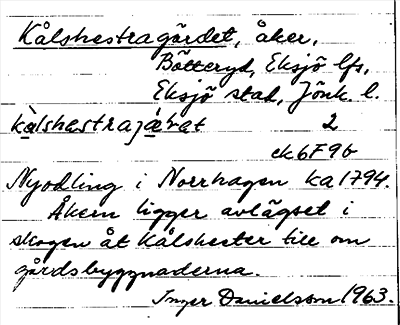 Kålshestragärdet, åker,
Bötteryd, Eksjö lfs,
Eksjö stad, Jönk. l.
kàlshestrajá̤rat 2
ek6F9b
Nyodling i Norrhagen ka 1794.
Åkern ligger avlägset i
skogen åt Kålshester till om
gårdsbyggnaderna.
Inger Danielsson 1963.